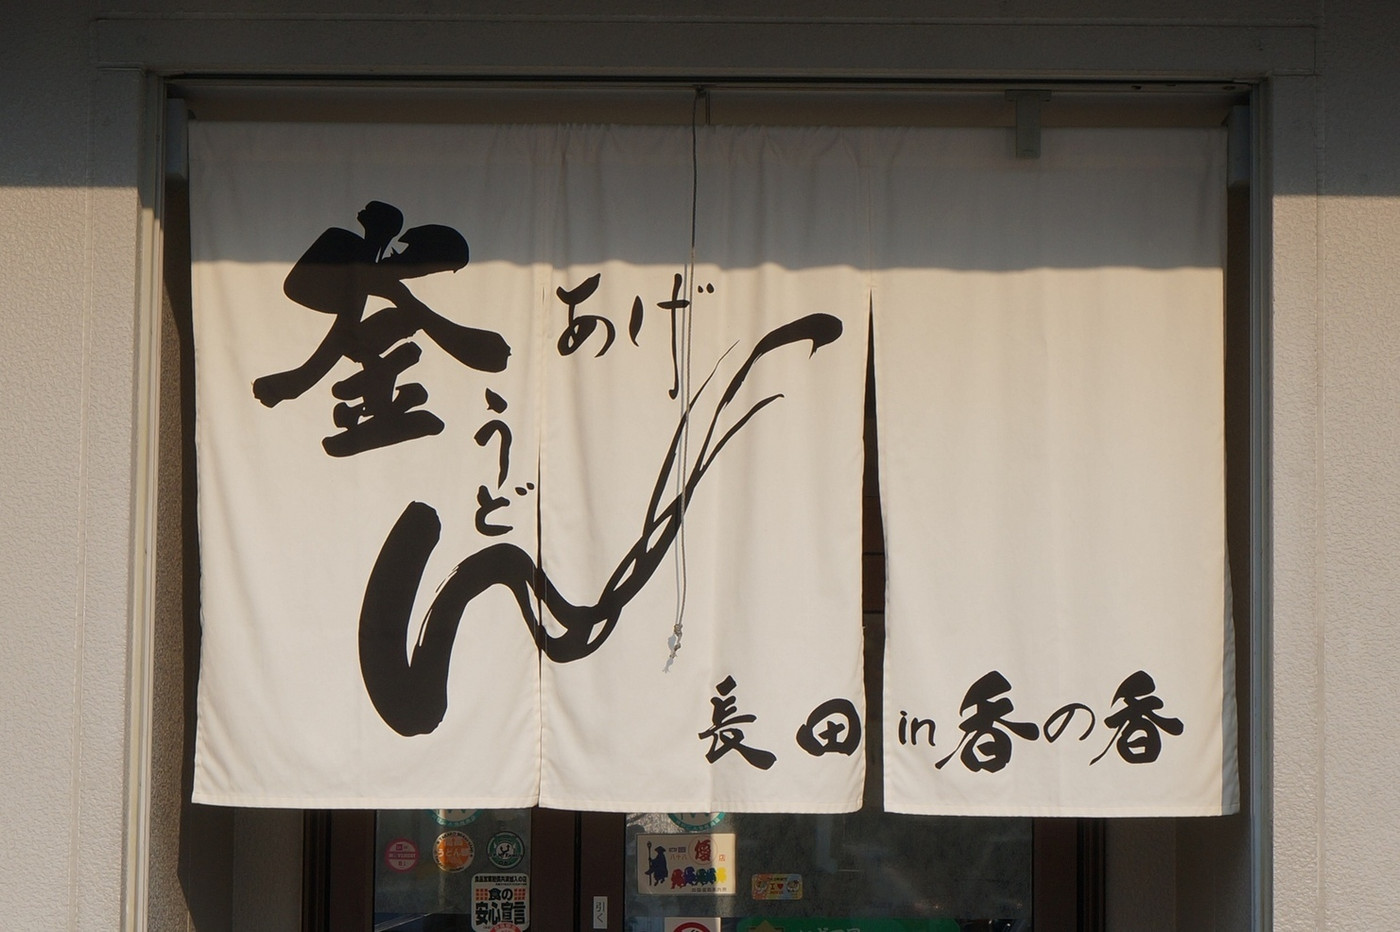 釜あげ
うどん
長田in香の香
優
店
食の
安心宣言
引く